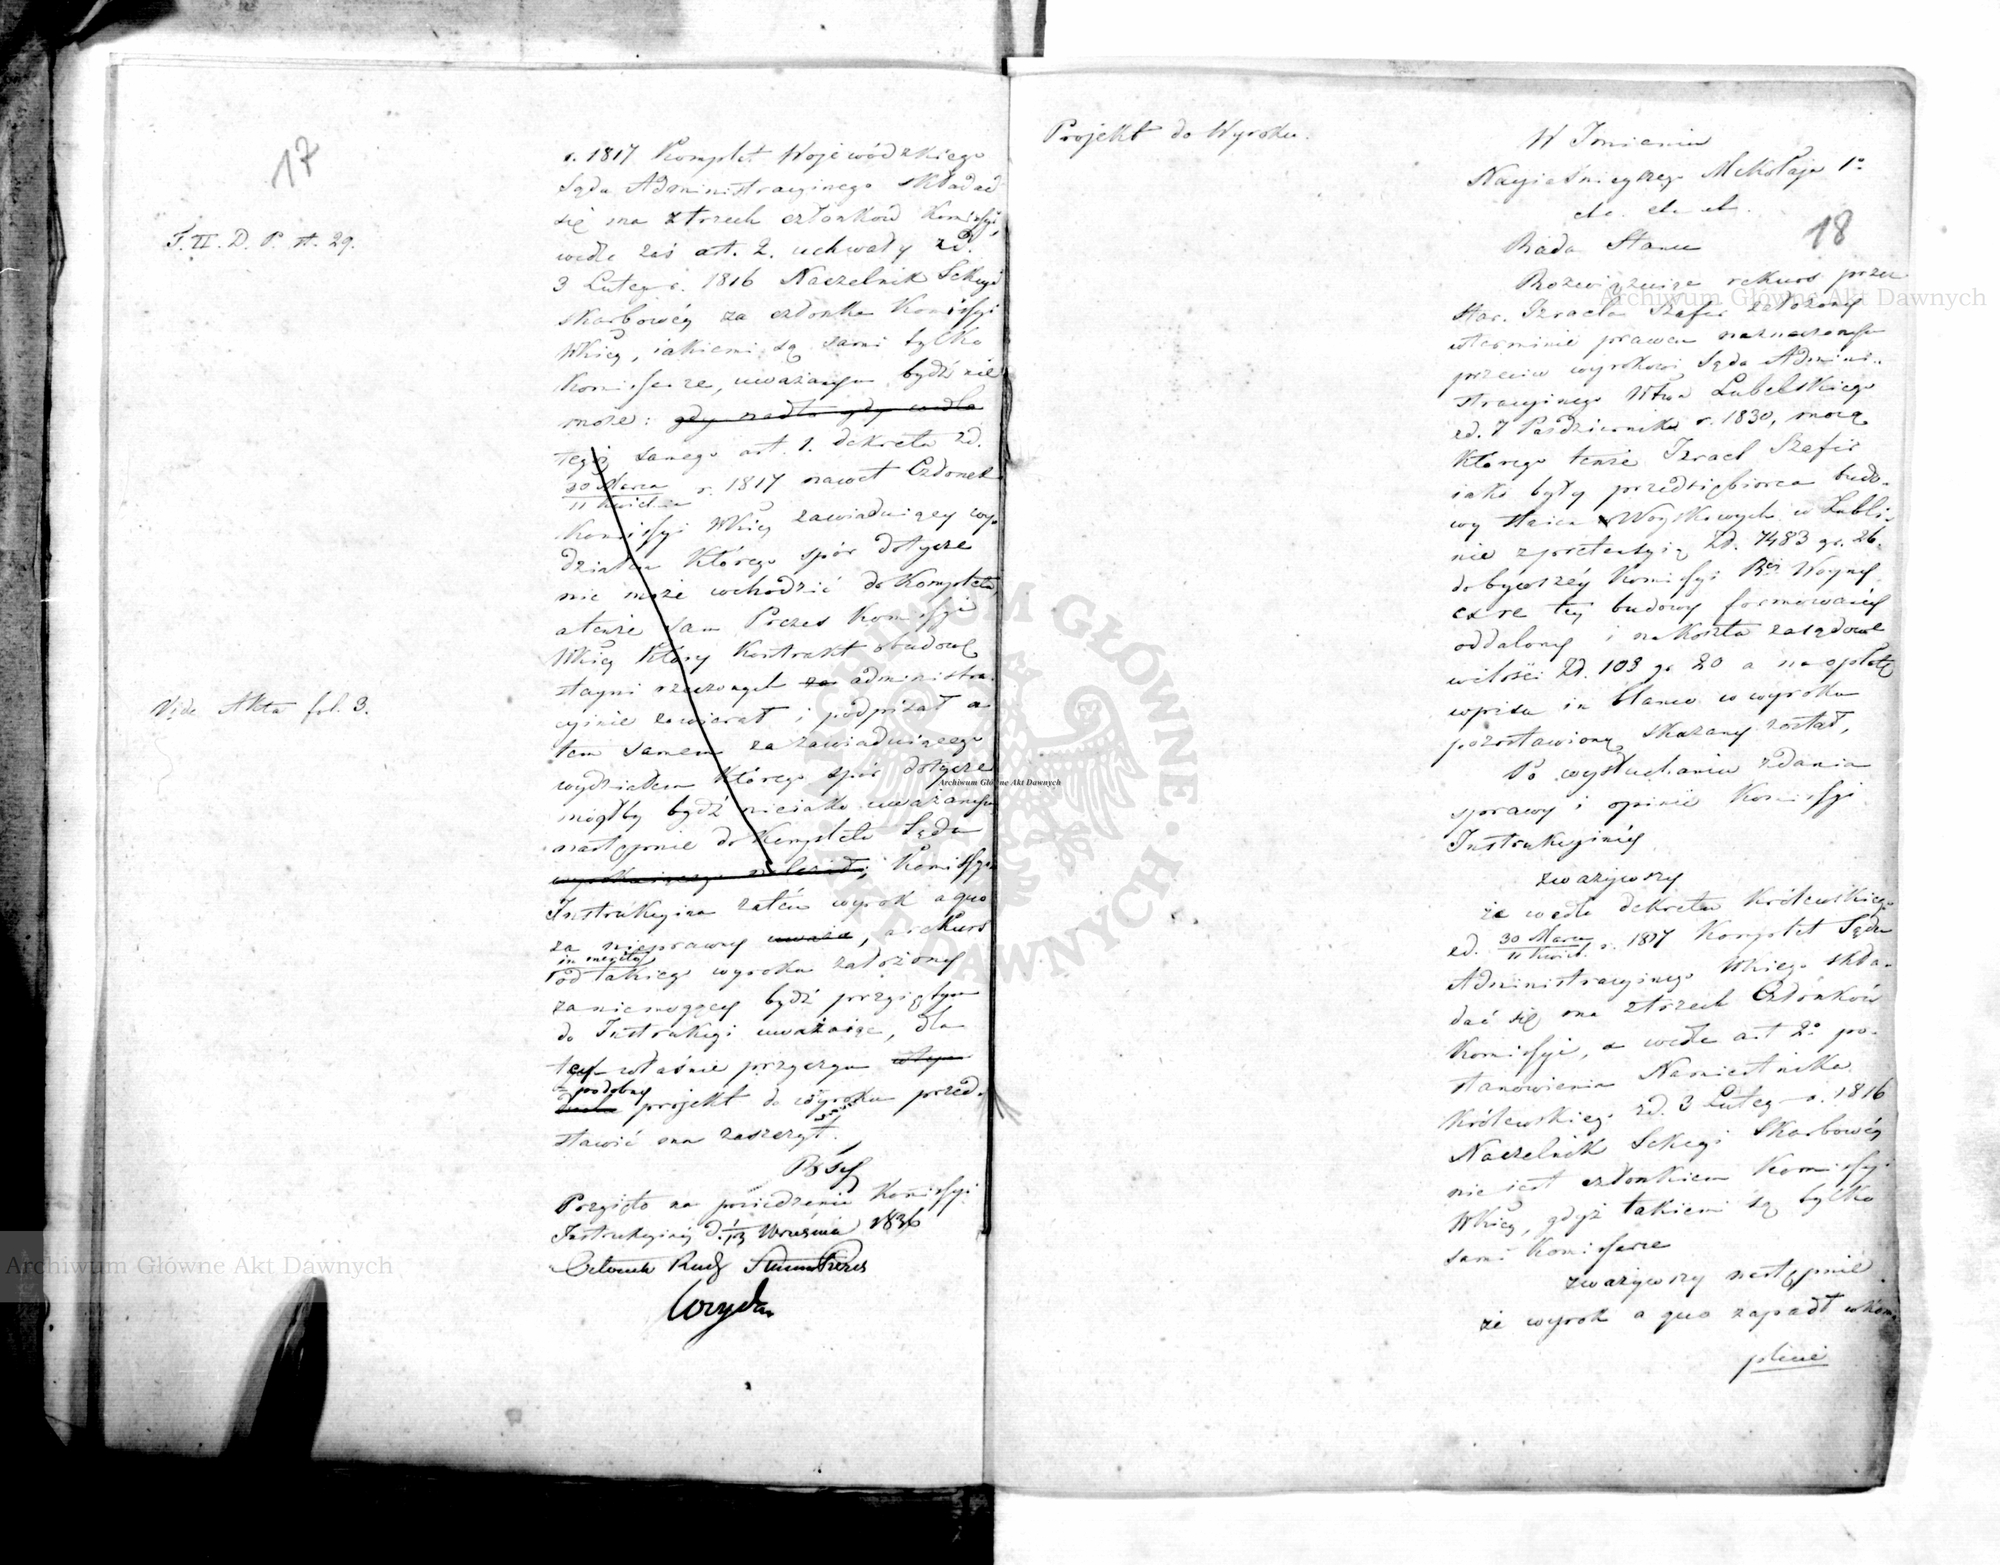 17
T. II. D. P. st. 29.
Vide Akta fol. 3.
r. 1817 Komplet Woiewódzkiego
Sądu Administracyinego składać
się ma z trzech członków Komissyi,
wedle zaś art. 2. uchwały z d.
3 Lutego r. 1816 Naczelnik Sekcyi
skarbowéy za członka Komissyi
Wkiey, iakiemi są sami tylko
Komissarze, uważanym bydź nie
może: gdy nadto gdy wedle
tegoż samego art. 1. dekretu z d.
30 Marca
11 Kwietnia r. 1817 nawet Członek
Komissyi Wkiey zawiaduiący wy-
działem którego spór dotycze
nie może wchodzić do Kompletu,
a tenże sam Prezes Komissyi
Wkiey który Kontrakt o budowę
stayni rzeczonych za administra-
cyinie zawierał i podpisał a
tem samem za zawiaduiącego
wydziałem którego spór dotycze
mógłby bydź nieiako uważanym
następnie do Kompletu Sądu
wyrokuiącego należał; Komissya
Instrukcyina zatém wyrok a quo
za nieprawny uważa, a rekurs
in merito
od takiego wyroku założony
za niemogący bydź przyiętym
do Instrukcyi uważaiąc, dla
tey właśnie przyczyny
podobny
projekt do wyroku przed-
stawić ma zaszczyt.
Przyięto na posiedzeniu Komissyi
Instrukcyiney d. 1/13 Września 1836
Członek Rady Stanu Prezes
Projekt do Wyroku.
W Imieniu
Nayiaśnieyszego Mikołaja 1o
etc. etc. etc.
18
Rada Stanu
Rozwiązuiąc rekurs przez
Star. Izraela Szafir założony
w terminie prawem naznaczonym
przeciw wyrokowi Sądu Admini-
stracyinego Wtwa Lubelskiego
z d. 7 Października r. 1830, mocą
którego tenże Izrael Szafir
iako były przedsiębiorca budo-
wy staien Woyskowych w Lubli-
nie z pretensyią Zł. 7483 gr. 26.
do bywszéy Komissyi Rei Woyny
ex re tey budowy formowanéy
oddalony i na koszta sądowe
w ilości Zł. 103 gr 20 a na opłatę
wpisu in blanco w wyroku
pozostawioną skazany został,
Po wysłuchaniu zdania
sprawy i opinii Komissyi
Instrukcyinéy
zważywszy
że wedle dekretu Królewskiego
z d. 30 Marca
11 Kwiet. r. 1817 Komplet Sądu
Administracyinego Wkiego skła-
dać się ma z trzech Członków
Komissyi, a wedle art 2o po-
stanowienia Namiestnika
Królewskiego z d. 3 Lutego r. 1816
Naczelnik Sekcyi Skarbowéy
nie iest członkiem Komissyi
Wkiey, gdyż takiemi są tylko
sami Komissarze
zważywszy następnie
że wyrok a quo zapadł w kom-
plecie